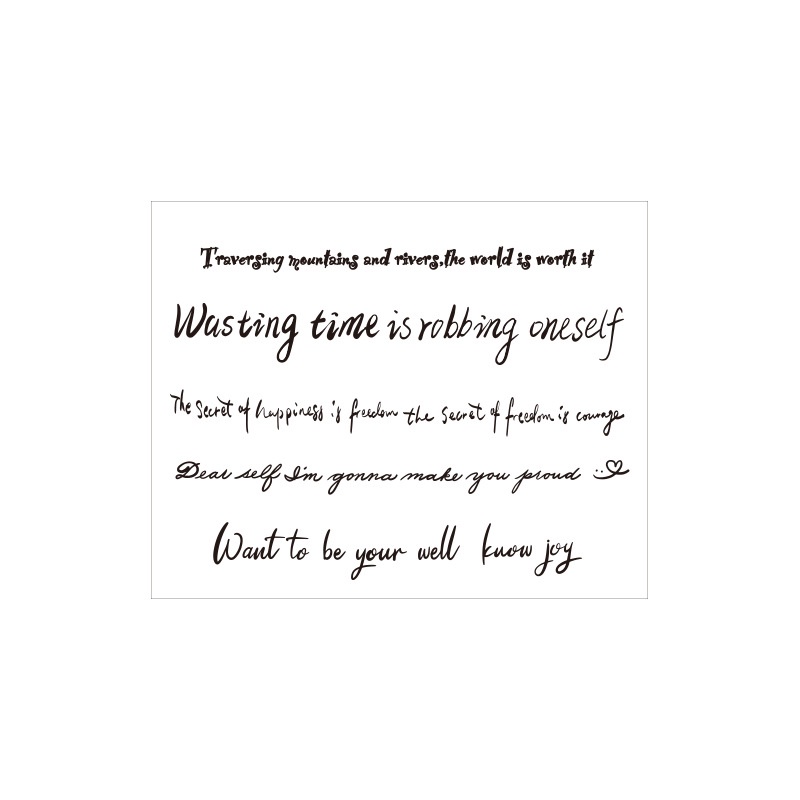 Traversing mountains and rivers,the world is worth it
Wasting time is robbing oneself
The secret of happiness is freedom the secret of freedom is courage
Dear self I'm gonna make you proud
Want to be your well know joy